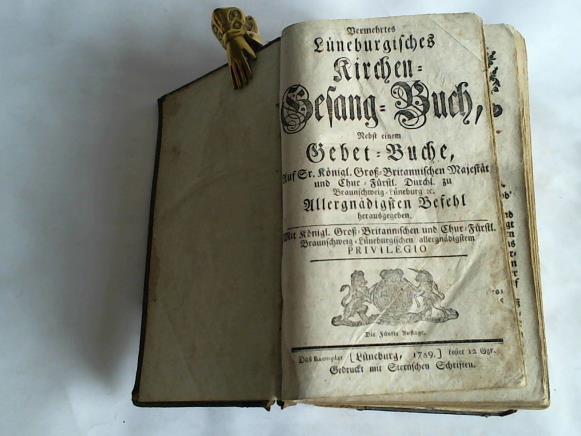 Vermehrtes
Lüneburgisches
Kirchen-
Gesang-Buch,
Nebst einem
Gebet-Buche,
Auf Sr. Königl. Groß-Britannischen Majestät
und Chur-Fürstl. Durchl. zu
Braunschweig-Lüneburg ꝛc.
Allergnädigsten Befehl
herausgegeben.
Mit Königl. Groß-Britannischen und Chur-Fürstl.
Braunschweig-Lüneburgischen allergnädigstem
PRIVILEGIO
Die Fünfte Auflage.
Das Exemplar [Lüneburg, 1789.] kostet 12 Ggr.
Gedruckt mit Sternschen Schriften.